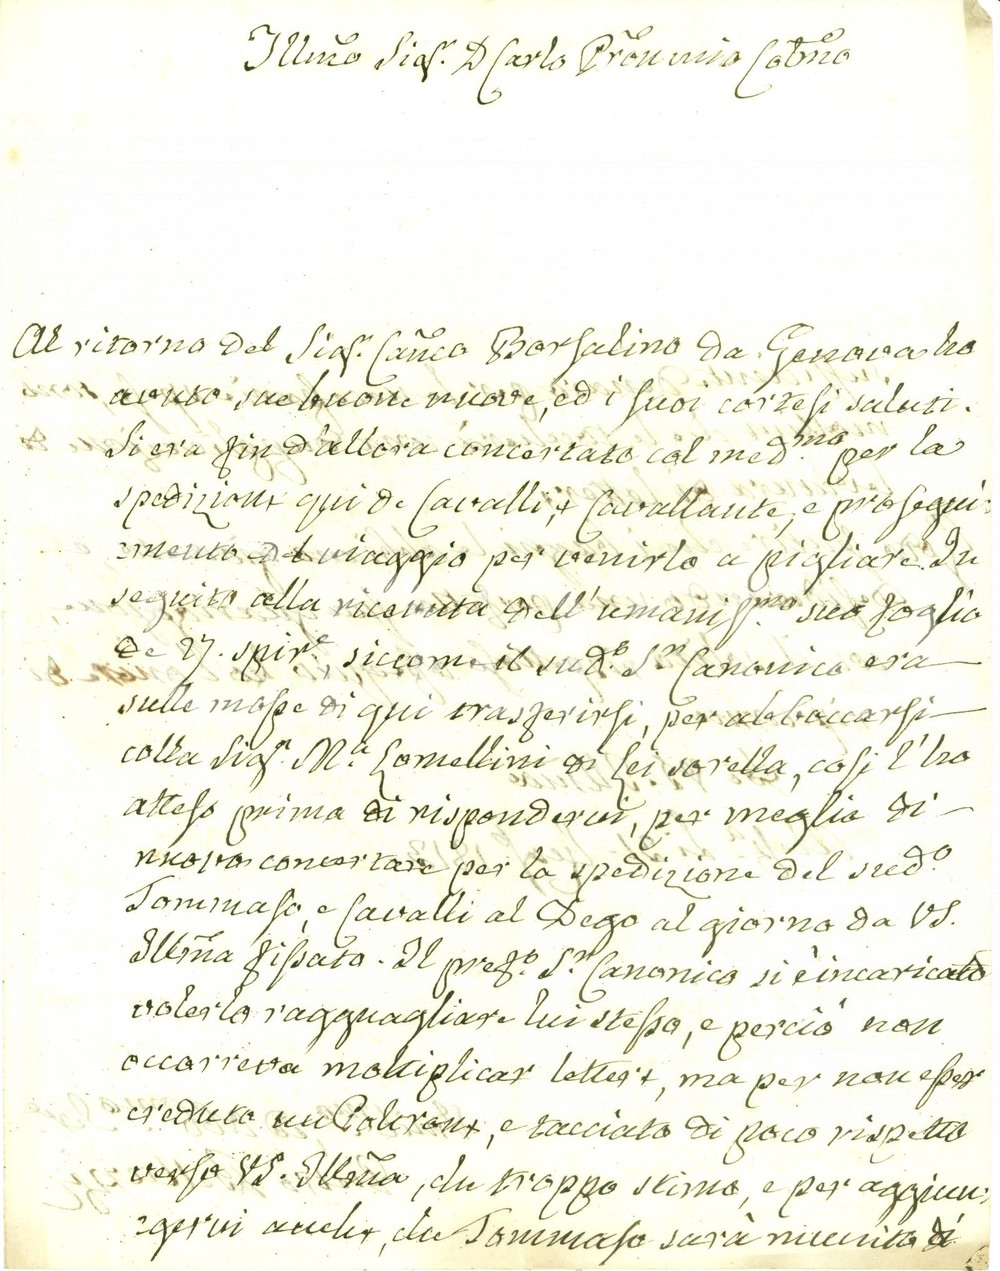 Illm̃o Sigr. D Carlo Pr̃on mio Col̃mo
Al ritorno del Sigr. Cañco Borsalino da Genova ho
avuto sue buone nuove, ed i suoi cortesi saluti.
Si era fin d'allora concertato col med.mo per la
spedizione qui de Cavalli, e Cavallante, e prosegui:
:mento del viaggio per venirlo a pigliare. In
seguito alla ricevuta dell' umaniss.mo suo foglio
de 27. spir.e, siccome il sud.o Sr Canonico era
sulle mosse di qui trasferirsi, per abboccarsi
colla Sigr. M.a Lomellini di Lei sorella, così l'ho
atteso prima di rispondervi, per meglio di
nuovo concertare per la spedizione del sud.o
Tommaso, e Cavalli al Dego al giorno da VS.
Illm̃a fissato. Il pref.o Sr Canonico si è incaricato
volerlo ragguagliare lui stesso, e perciò non
occorreva moltiplicar lettere, ma per non esser
creduto un Poltrone, e tacciato di poco rispetto
verso VS. Illm̃a, che troppo stimo, e per aggiun:
:gervi anche, che Tommaso sarà munito di